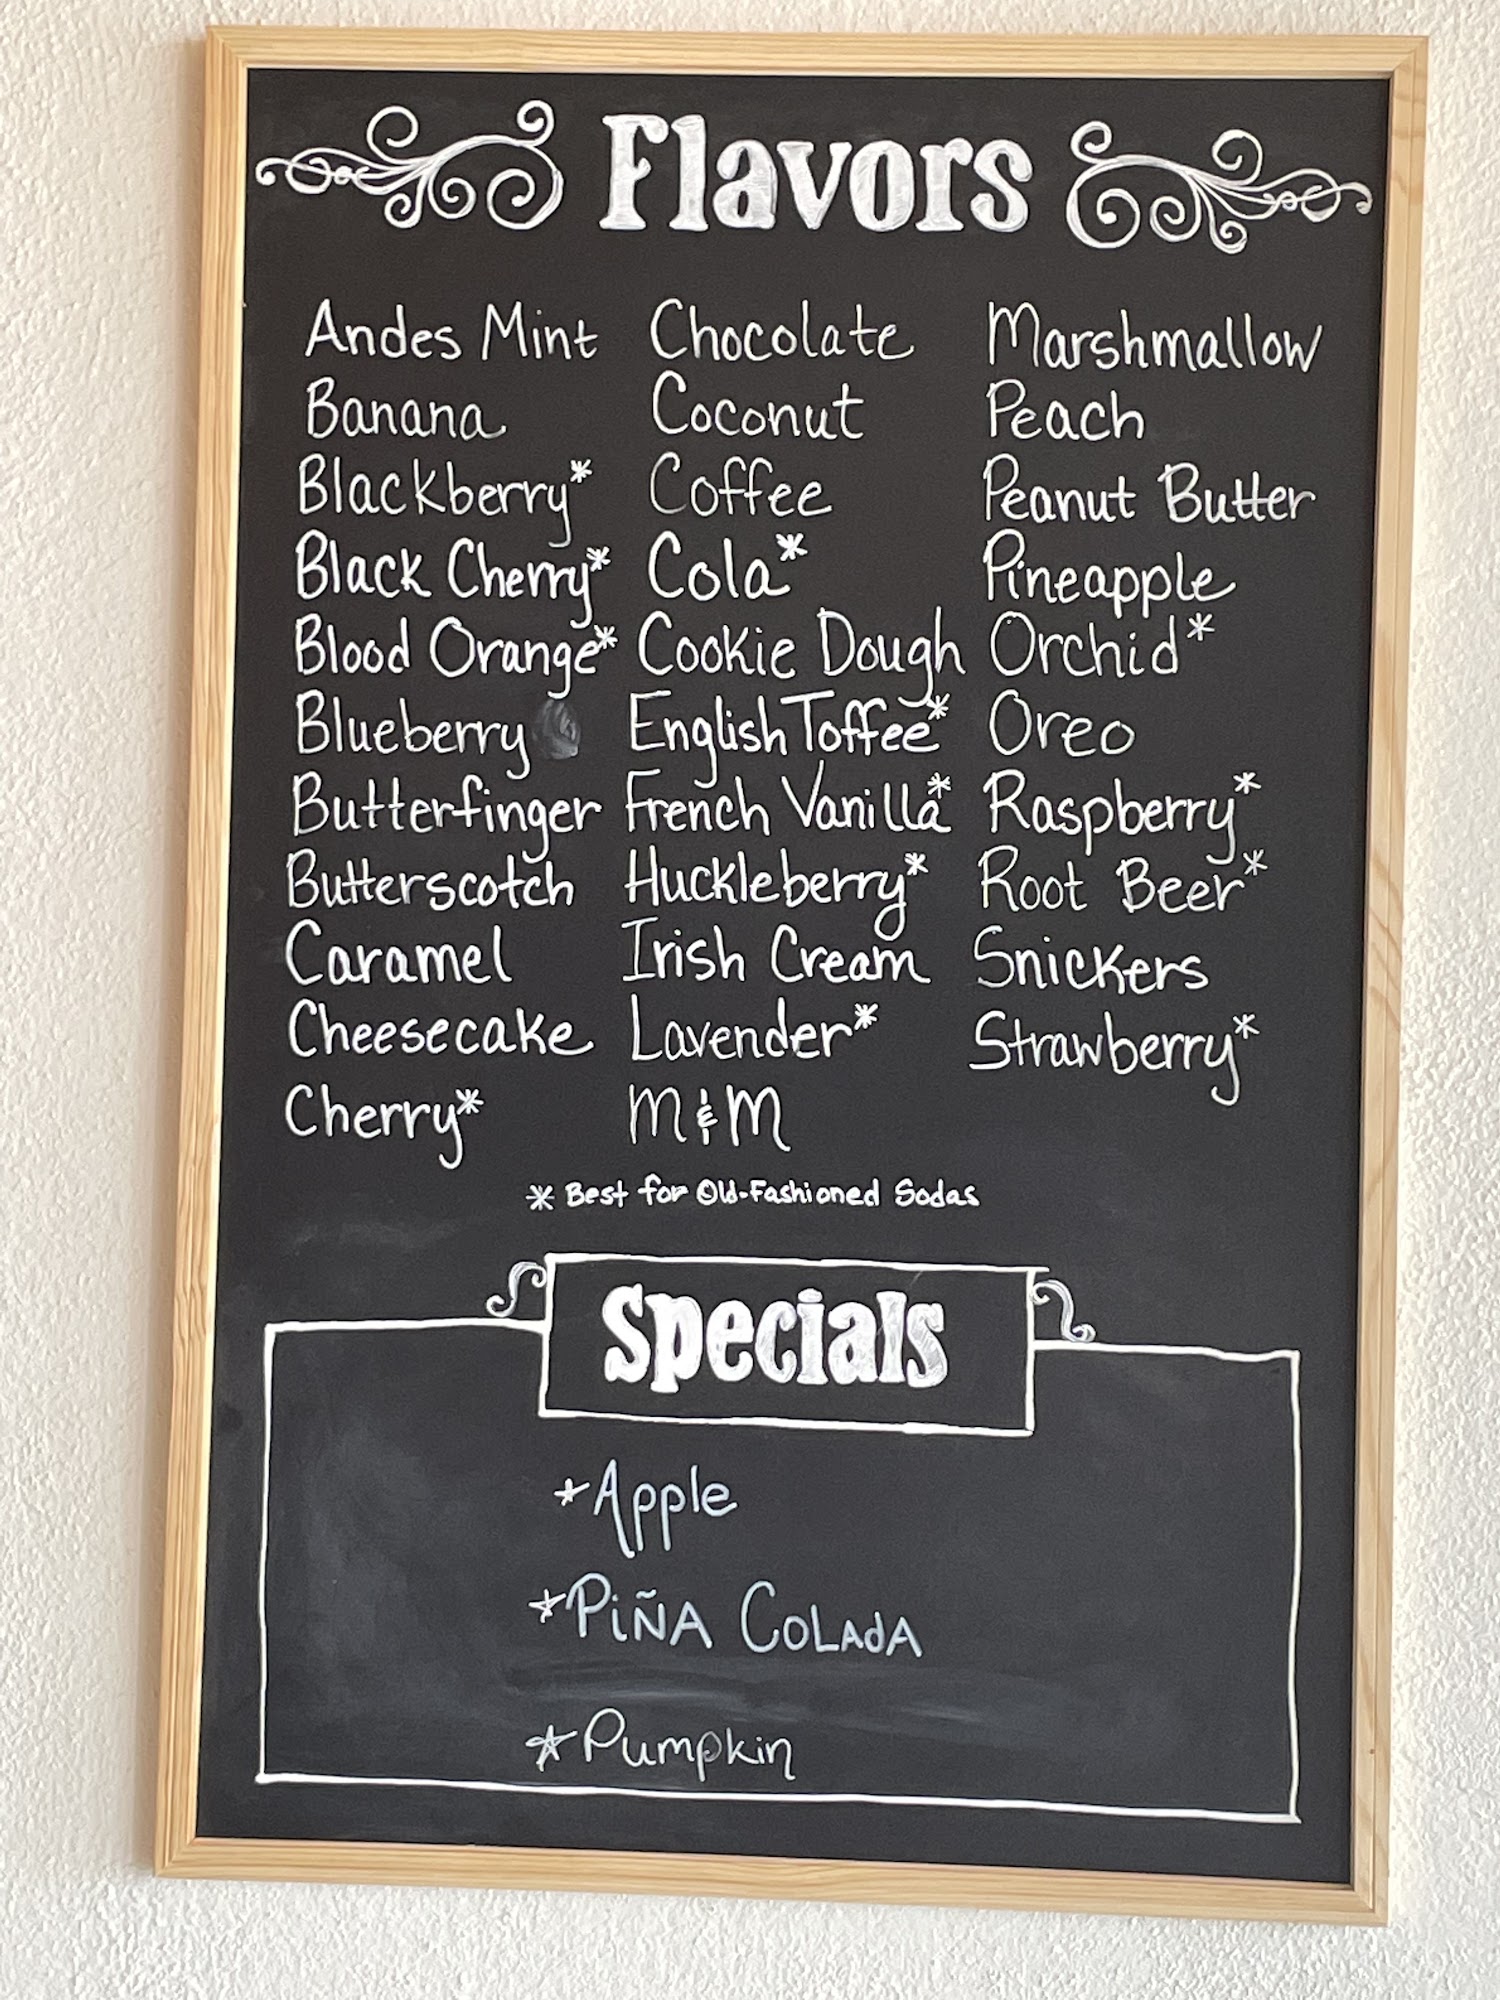 Flavors
Andes Mint
Banana
Blackberry*
Black Cherry*
Blood Orange*
Blueberry
Butterfinger
Butterscotch
Caramel
Cheesecake
Cherry*
Chocolate
Coconut
Coffee
Cola*
Cookie Dough
English Toffee*
French Vanilla*
Huckleberry*
Irish Cream
Lavender*
M&M
Marshmallow
Peach
Peanut Butter
Pineapple
Orchid*
Oreo
Raspberry*
Root Beer*
Snickers
Strawberry*
* Best for Old-Fashioned Sodas
Specials
*Apple
*PiÑA COLAdA
*Pumpkin